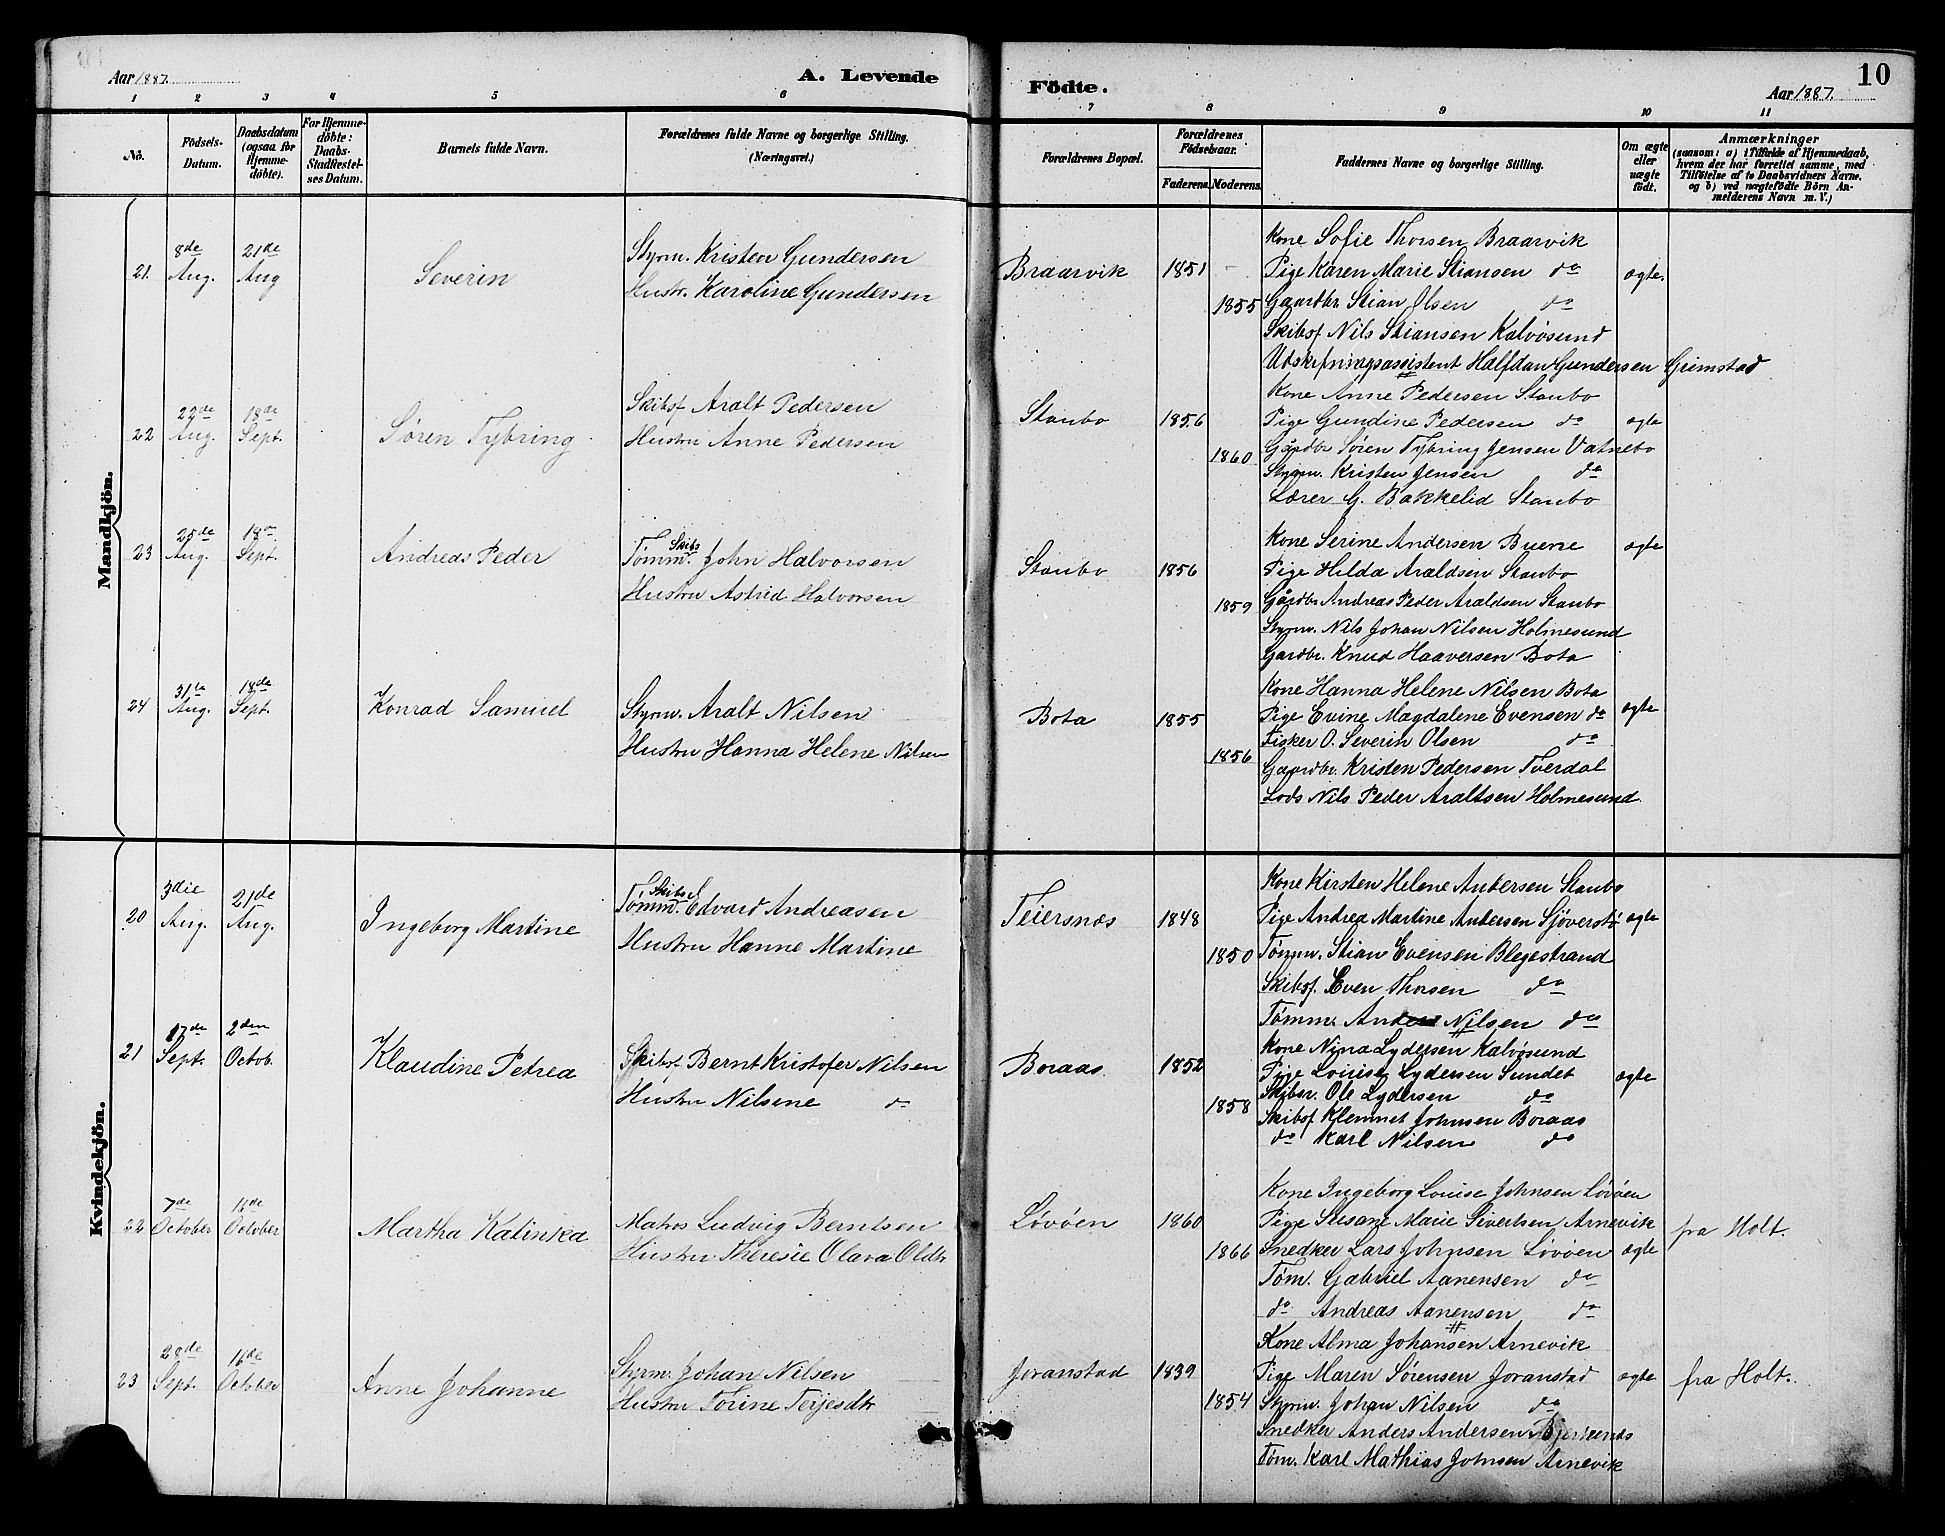 Aar 1887.
A. Levende
Födte.
Aar 1887.
10
1 2 3 4 5 6 7 8 9 10 11
No.
Födsels-Datum.
Daabsdatum (ogsaa for Hjemme-döbte).
For Hjemme-döbte: Daabs-Stadfæstel-ses Datum.
Barnets fulde Navn.
Forældrenes fulde Navne og borgerlige Stilling.
(Næringsvei.)
Forældrenes Bopæl.
Forældrenes Födselsaar.
Faderens. Moderens.
Faddernes Navne og borgerlige Stilling.
Om ægte eller uægte födt.
Anmærkninger
(saasom: a) i Tilfælde af Hjemmedaab, hvem der har forrettet samme, med Tilföielse af to Daabsvidners Navne. og b) ved uægtefödte Börn An-melderens Navn m. V.)
Mandkjön.
21. 8de Aug. 21de Aug Severin
Styrm. Kristen Gundersen
Hustr. Karoline Gundersen
Braarvik 1851 1855
Kone Sofie Thorsen Braarvik
Pige Karen Marie Stiansen do
Gaardbr. Stian Olsen do
Skibsf Nils Stiansen Kalvøsund
Udskiftningsassistent Halfdan Gundersen Grimstad
ægte.
22 22de Aug. 18de Sept. Søren Tybring
Skibsf Aralt Pedersen
Hustru Anne Pedersen
Staubo 1856 1860
Kone Anne Pedersen Staubo
Pige Gundine Pedersen do
Gårdbr Søren Tybring Jensen Vatnebo
Styrm. Kristen Jensen do
Lærer G. Bakkelid Staubo
ægte
23 25de Aug. 18de Sept. Andreas Peder
Skibs Tømm. John Halvorsen
Hustru Astrid Halvorsen
Staubo 1856 1859
Kone Serine Andersen Buene
Pige Hilda Araldsen Staubo
Gårdbr Andreas Peder Araldsen Staubo
Styrm. Nils Johan Nilsen Holmesund
Gardbr. Knud Haaversen Bota
ægte
24 31te Aug. 18de Sept. Konrad Samuel
Styrm. Aralt Nilsen
Hustru Hanna Helene Nilsen
Bota 1855 1856
Kone Hanna Helene Nilsen Bota
Pige Evine Magdalene Evensen do
Fisker O. Severin Olsen do
Gaardbr. Kristen Pedersen Tverdal
Lods Nils Peder Araltsen Holmesund
ægte
Kvindekjön.
20 3die Aug. 21de Aug. Ingeborg Martine
Skibs Tømm. Edvard Andreasen
Hustru Hanne Martine
Teiersnæs 1848 1850
Kone Kirsten Helene Andersen Staubo
Pige Andrea Martine Andersen Sjøverstø
Tømm. Stian Evensen Blegestrand
Skibsf. Even Thorsen do
Tømm. Anders Nilsen do
ægte
21 17de Sept. 2den Octob. Klaudine Petrea
Skibsf Bernt Kristofer Nilsen
Hustru Nilsine do
Boraas 1852 1858
Kone Nina Lydersen Kalvøsund
Pige Louise Lydersen Sundet
Skibsr. Ole Lydersen do
Skibsf Klemmet Johnsen Boraas
do Karl Nilsen do
ægte
22 7de October 16de October Martha Katinka
Matros Ludvig Berntsen
Hustru Theresie Olava Oldtr
Løvøen 1860 1866
Kone Ingeborg Louise Johnsen Løvøen
Pige Susane Marie Sivertsen Arnevik
Snedker Lars Johnsen Løvøen
Tøm. Gabriel Aanensen do
do Andreas Aanensen do
ægte fra Holt.
23 28de Sept. 16de October Anne Johanne
Styrm. Johan Nilsen
Hustru Torine Terjesdtr
Joranstad 1839 1854
Kone Alma Johansen Arnevik
Pige Maren Sørensen Joranstad
Styrm. Johan Nilsen do
Snedker Anders Andersen Bjerkenæs
Tøm. Karl Mathias Johnsen Arnevik
ægte fra Holt.